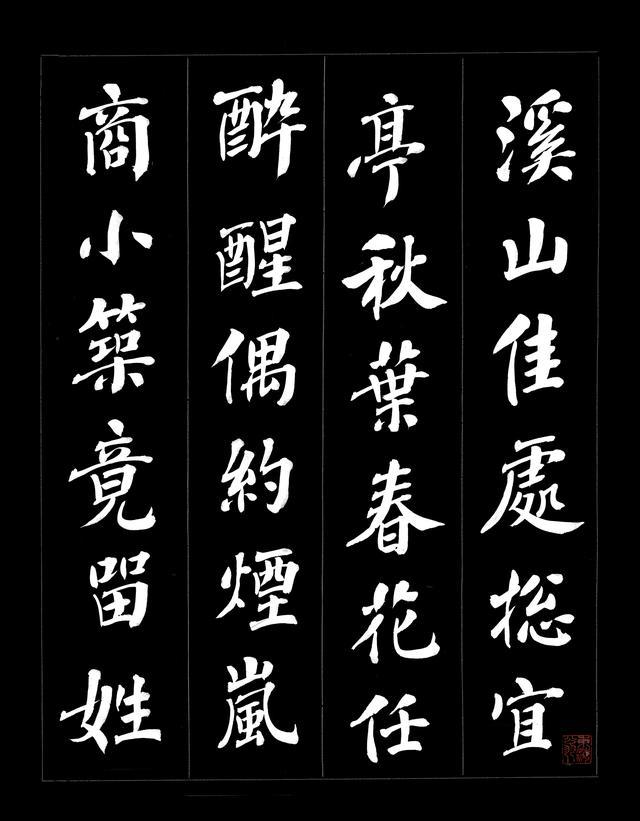 溪山佳處捴宜
亭秋葉春花任
醉醒偶約煙嵐
商小築竟留姓